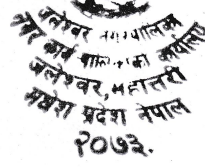 जलेश्वर नगरपालिका
नगर कार्य पालिकाको कार्यालय
जलेश्वर, महोत्तरी
मधेश प्रदेश नेपाल
२०७३.